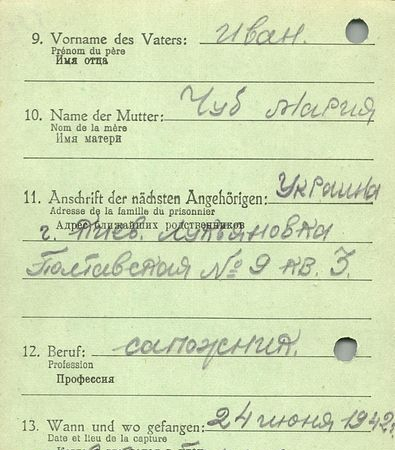 9. Vorname des Vaters: Иван.
Prénom du père
Имя отца
10. Name der Mutter: Чуб Мария
Nom de la mère
Имя матери
11. Anschrift der nächsten Angehörigen: Украина
Adresse de la famille du prisonnier
Адрес ближайших родственников
г. Киев. Лукьяновка
Полтавская № 9 кв. 3.
12. Beruf: сапожник.
Profession
Профессия
13. Wann und wo gefangen: 24 июня 1942г.
Date et lieu de la capture